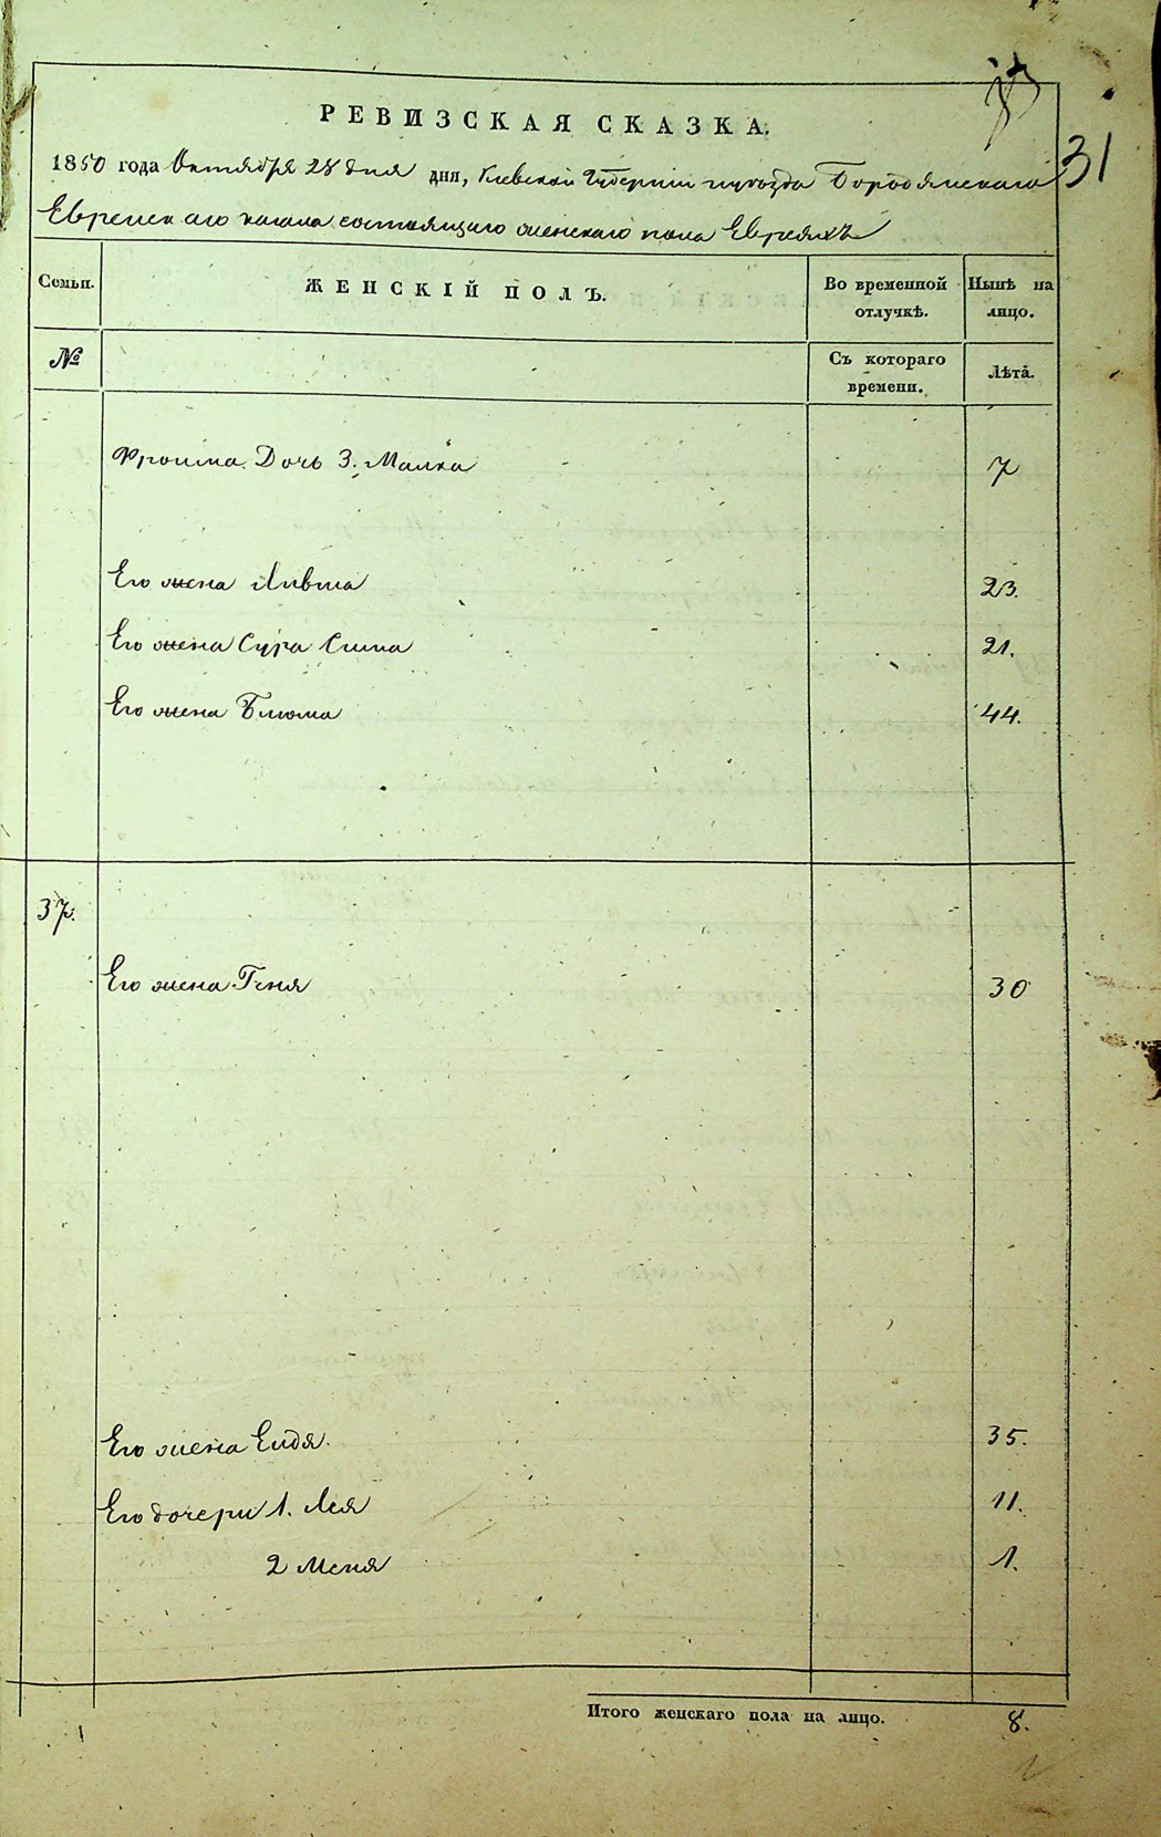 31
РЕВИЗСКАЯ СКАЗКА.
1850 года Октября 28 дня дня, Киевской Губернии и уезда Бородянскаго
Еврейскаго кагала состоящаго женскаго пола Евреяхъ
Семьи. ЖЕНСКІЙ ПОЛЪ. Во временной отлучкѣ. Нынѣ на лицо.
№ Съ котораго времени. Лѣта.
Фроима Дочь 3. Малка 7
Его жена Ливша 23.
Его жена Сура Сима 21.
Его жена Блюма 44.
37.
Его жена Геня 30
Его жена Еидя. 35.
Его дочери 1. Лея 11.
2 Меня 1.
Итого женскаго пола на лицо. 8.